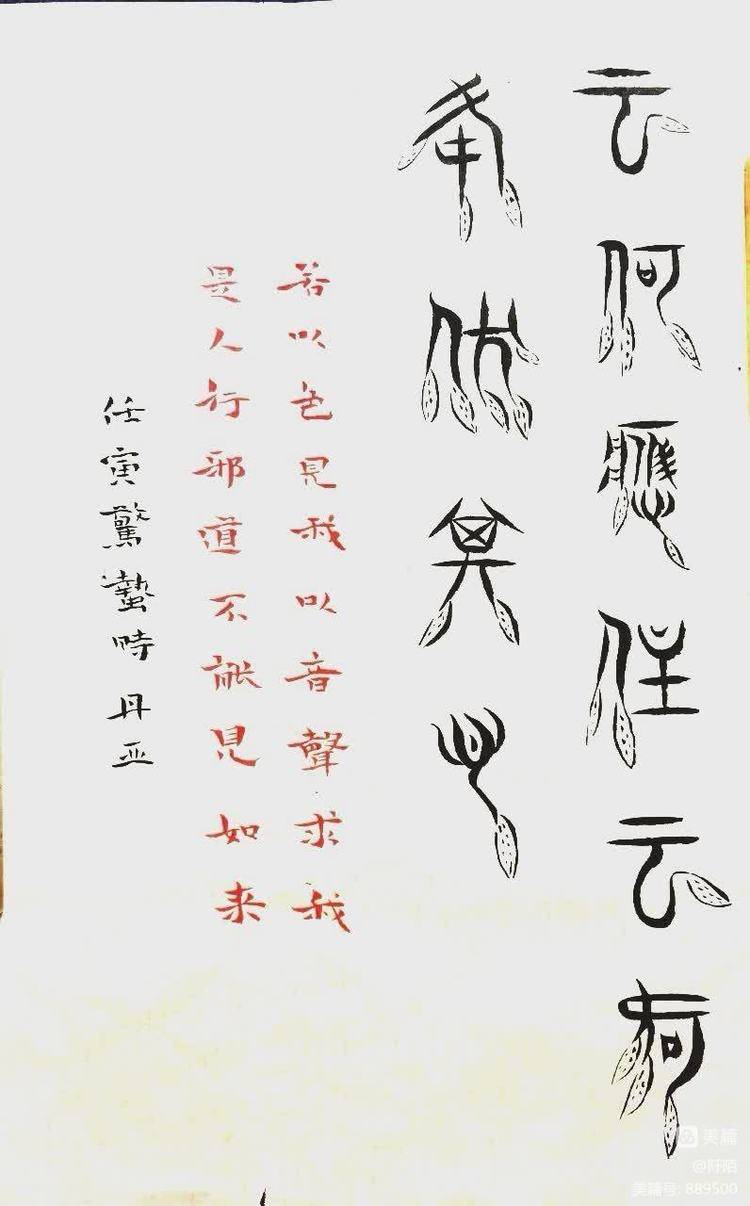 云何應住云何
夅伏其心
若以色見我以音聲求我
是人行邪道不能見如来
任寅驚蟄時丹亚
美篇
@阡陌
美篇号: 889500